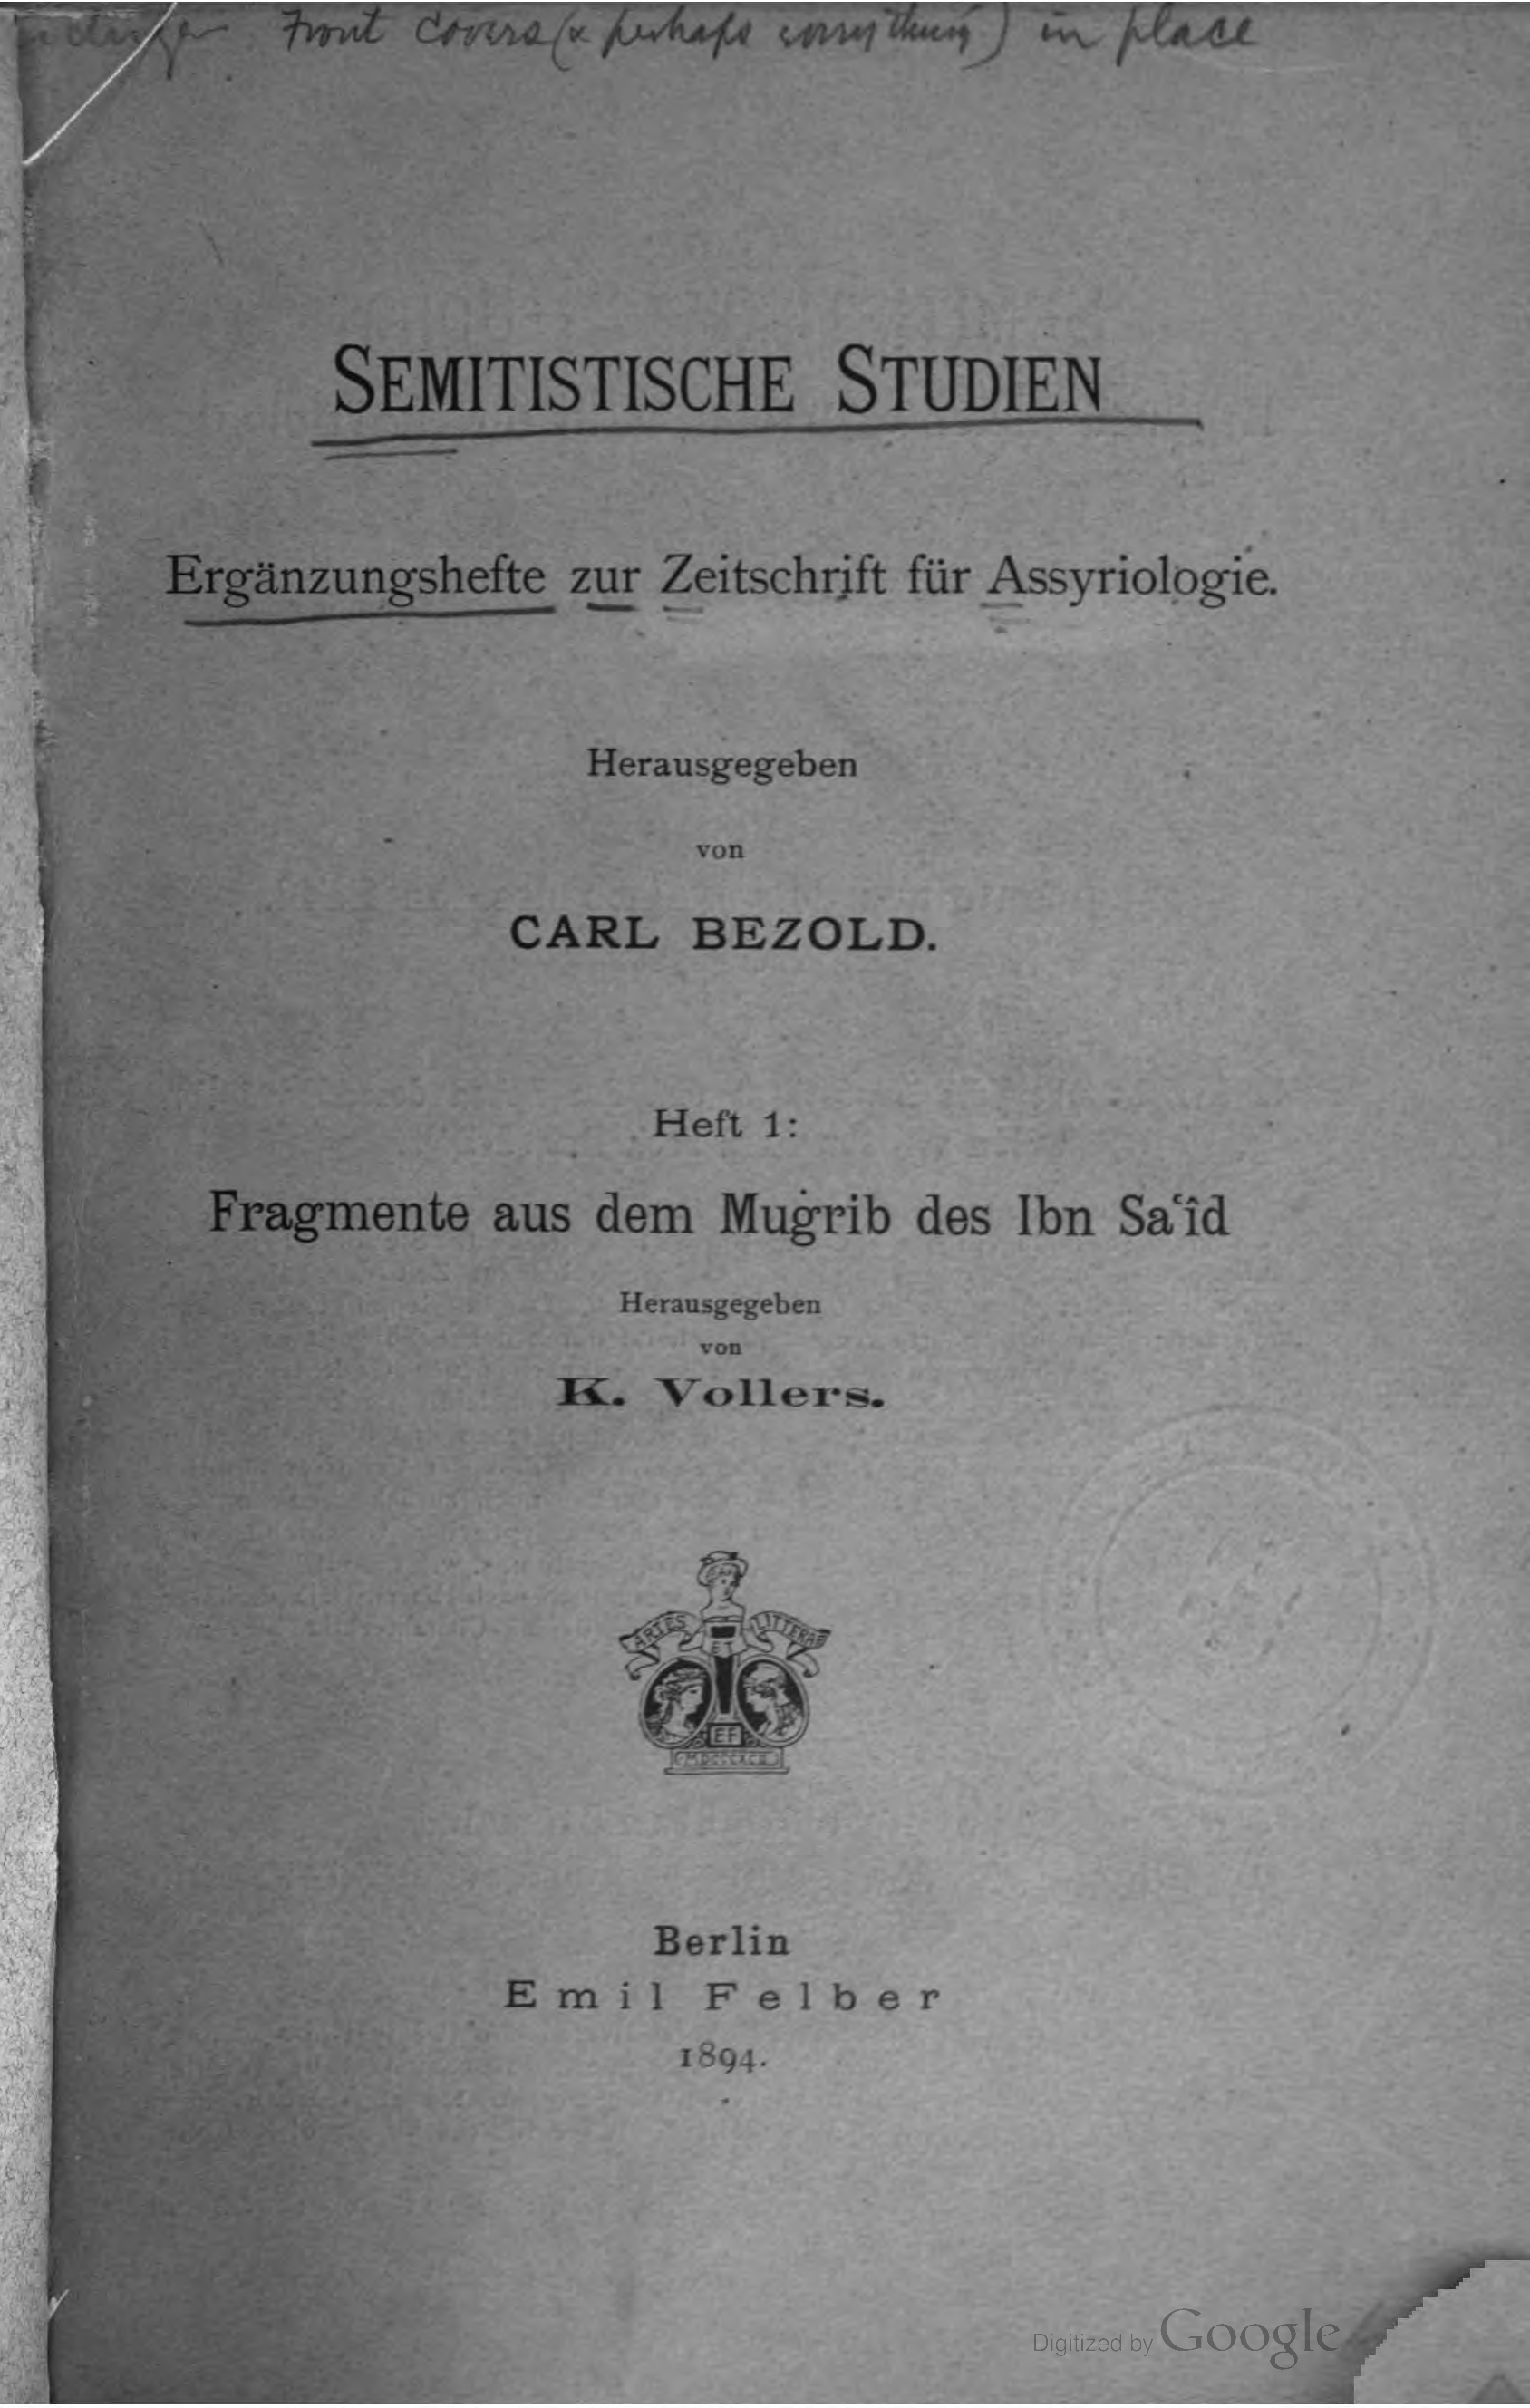 Front covers (& perhaps everything) in place
SEMITISTISCHE STUDIEN
Ergänzungshefte zur Zeitschrift für Assyriologie.
Herausgegeben
von
CARL BEZOLD.
Heft 1:
Fragmente aus dem Muġrib des Ibn Saʿîd
Herausgegeben
von
K. Vollers.
ARTES ET LITTERAE
EF
MDCCCXCII
Berlin
Emil Felber
1894.
Digitized by Google